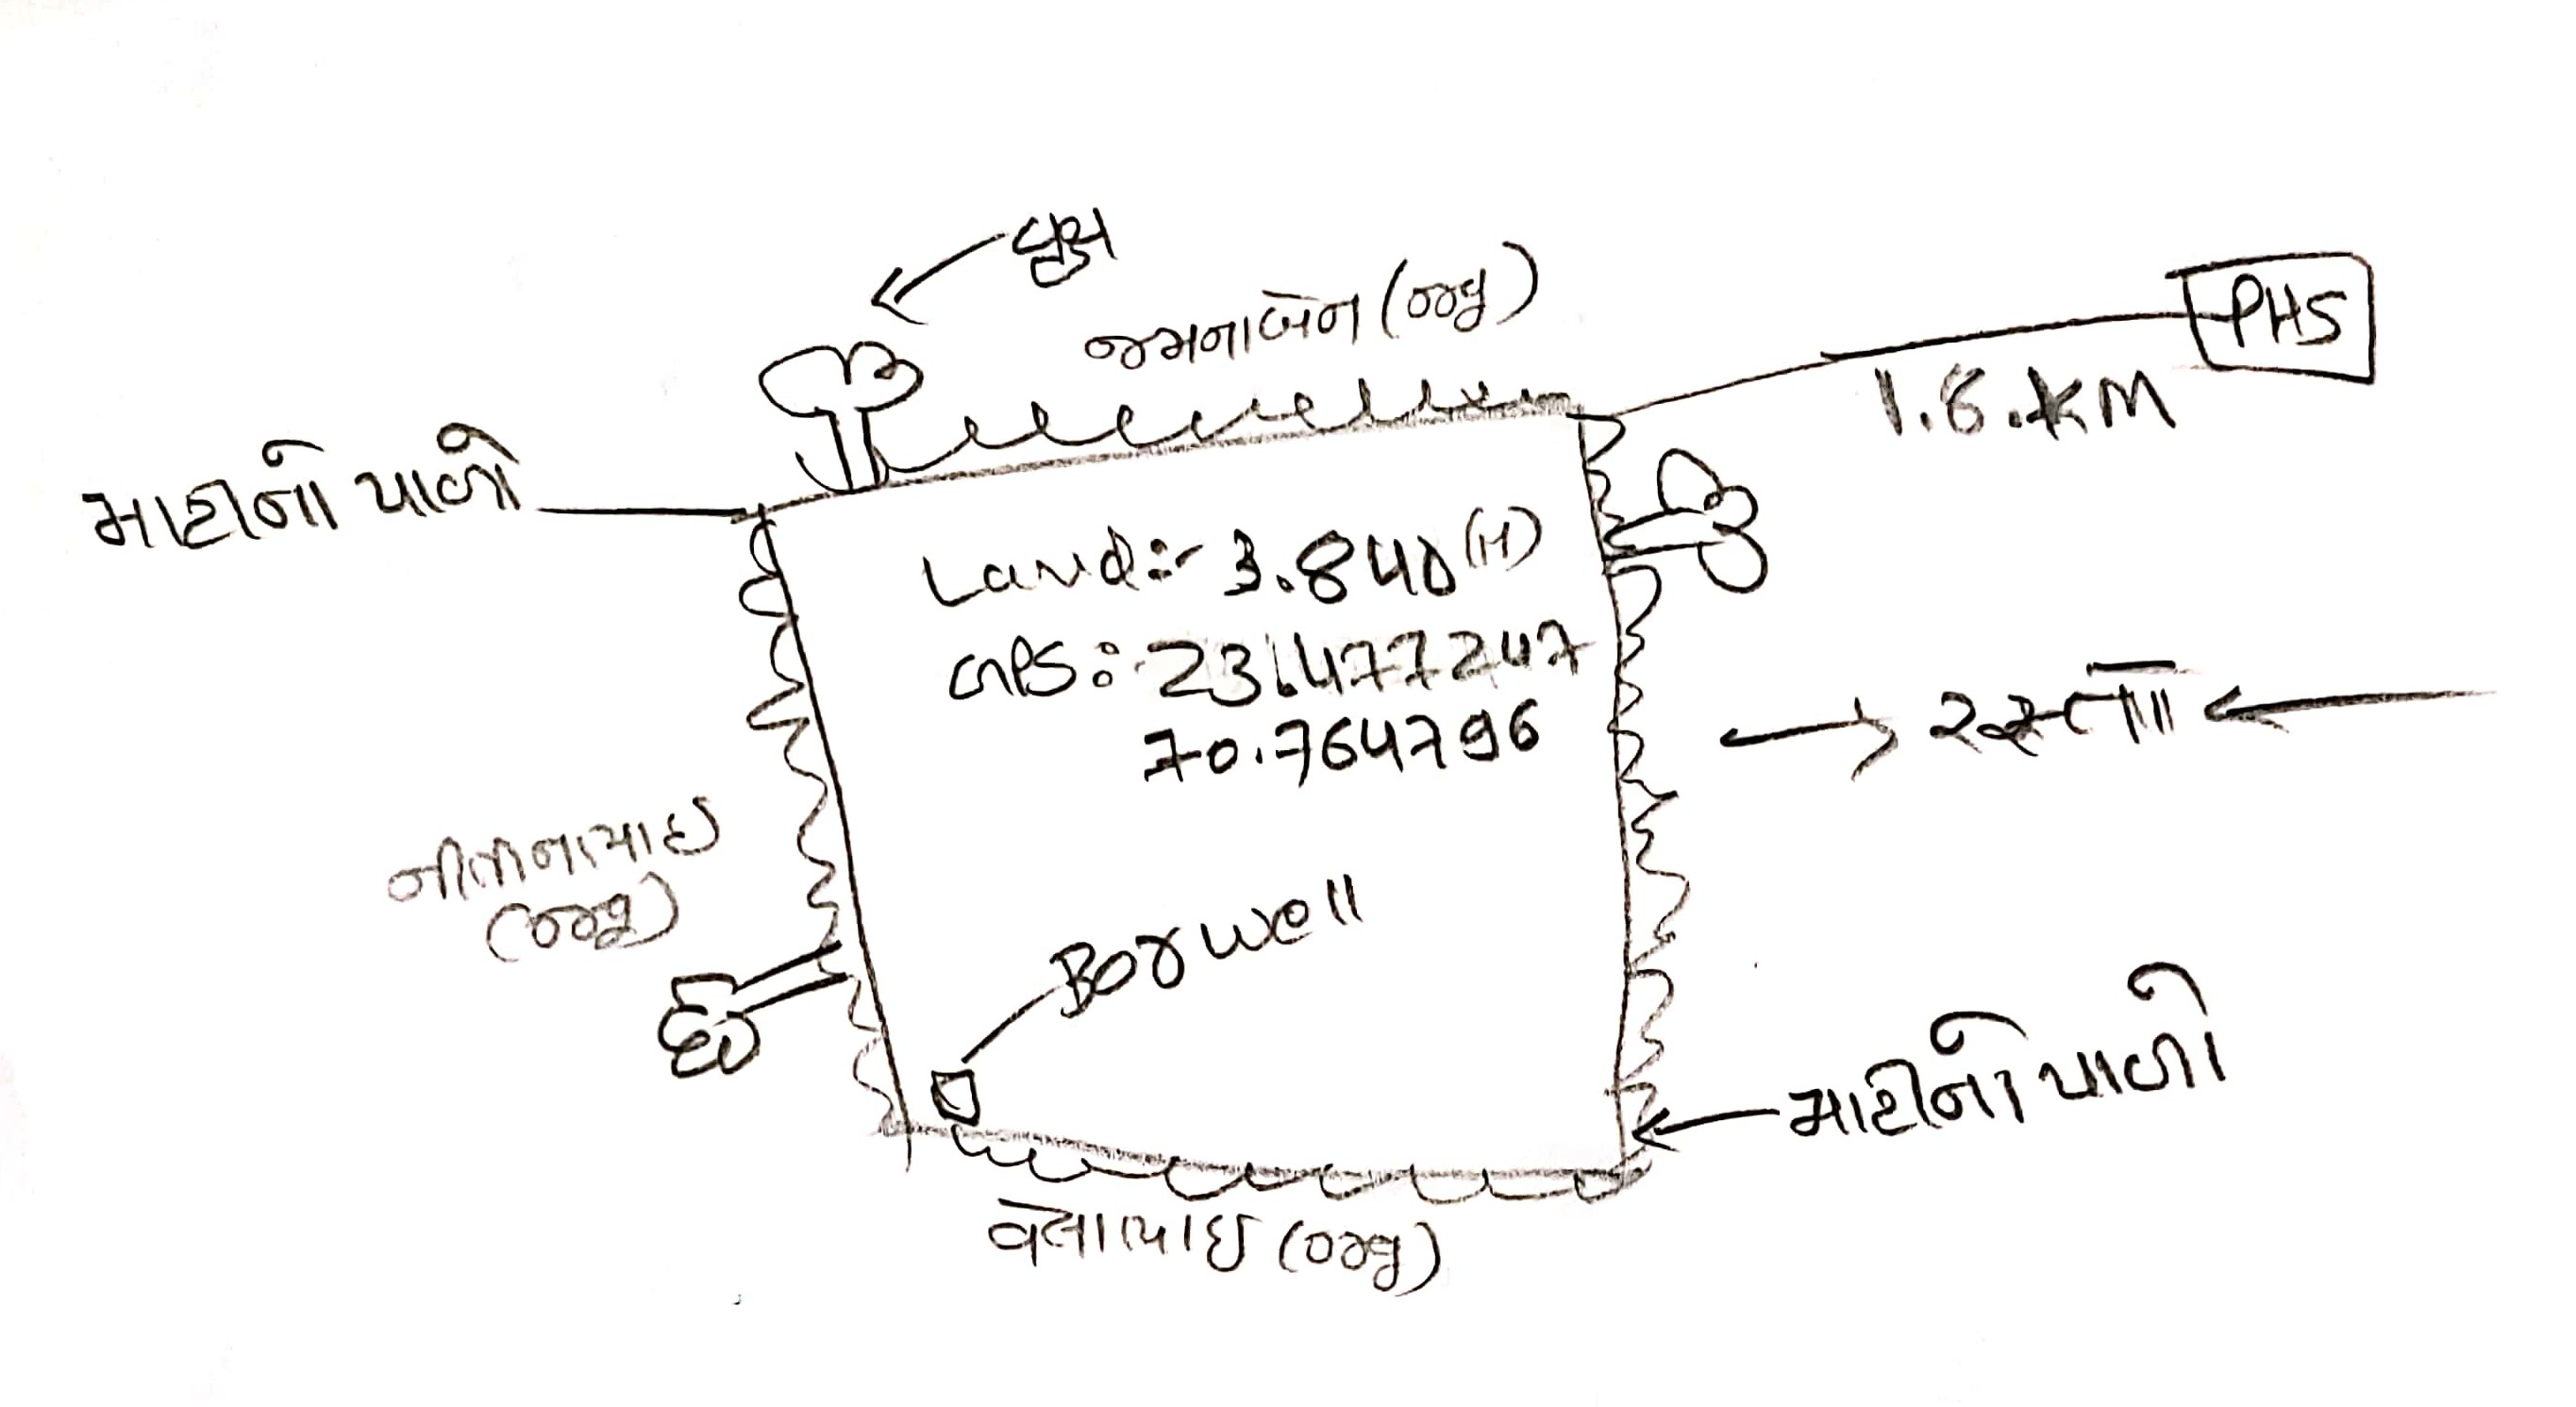 વૃક્ષ
જમનાબેન (જીરૂ)
PHS
1.8.KM
માટીનો પાળો
Land:- 3.840 (H)
GPS: 23.477247
70.764796
રસ્તો
નીતીનભાઇ
(જીરૂ)
Borwell
માટીનો પાળો
વેલાભાઇ (જીરૂ)